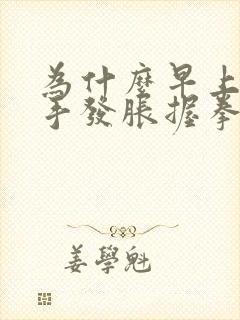 為什麼早上
手發脹握拳
姜學魁